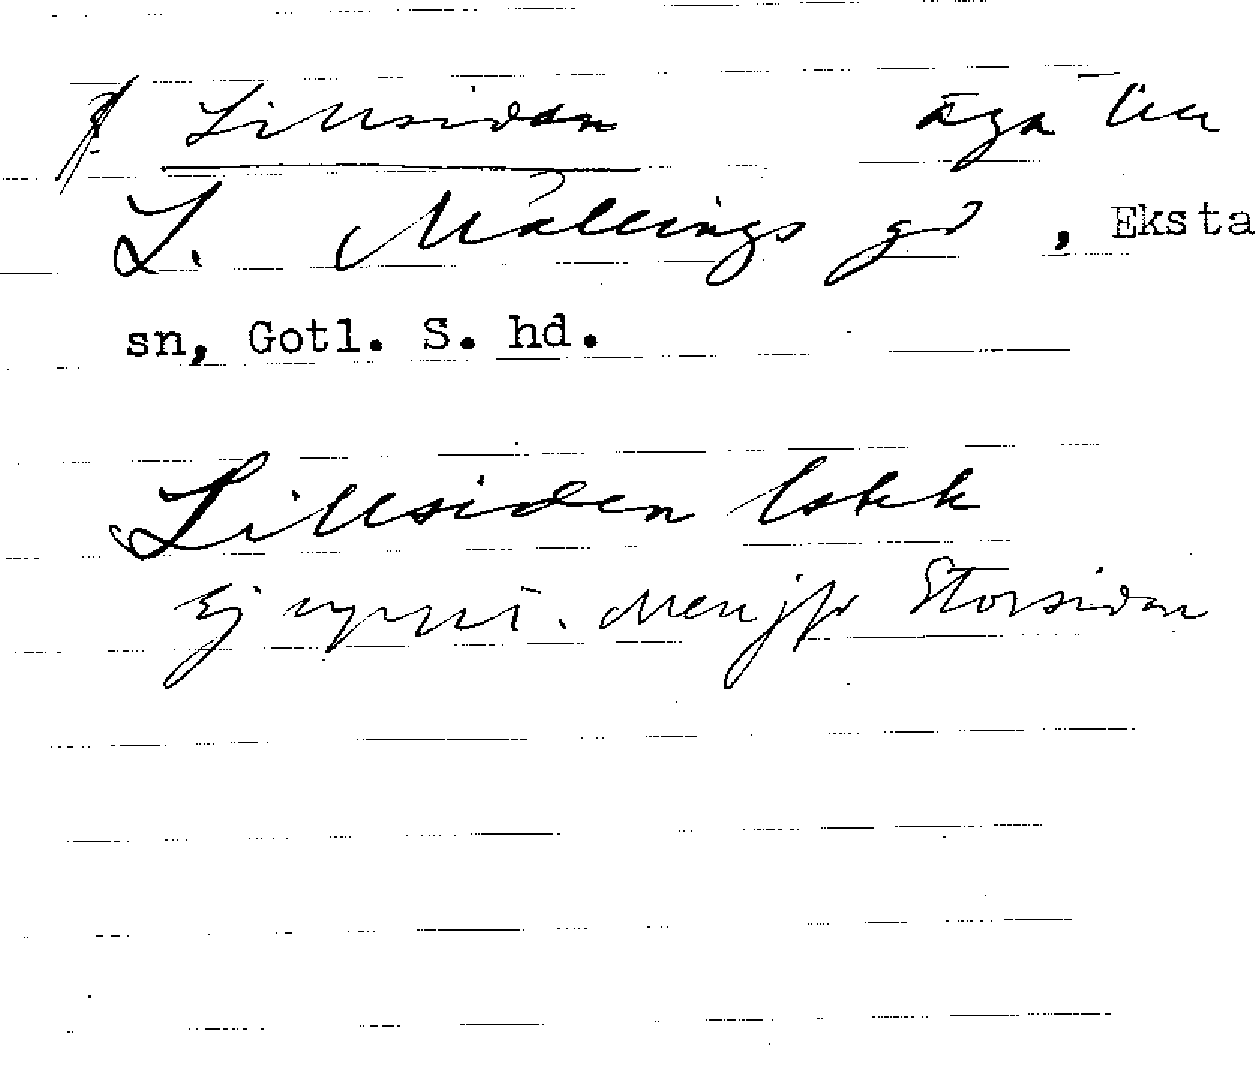 Lillsidan äga till
L. Mallings gd, Eksta
sn, Gotl. S. hd.
Lillsiden Lskk
Ej uppmt. Men jfr Storsidan